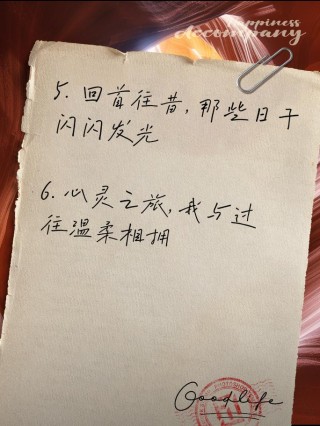 happiness
accompany
5. 回首往昔，那些日子
闪闪发光
6. 心灵之旅，我与过
往温柔相拥
Goodlife